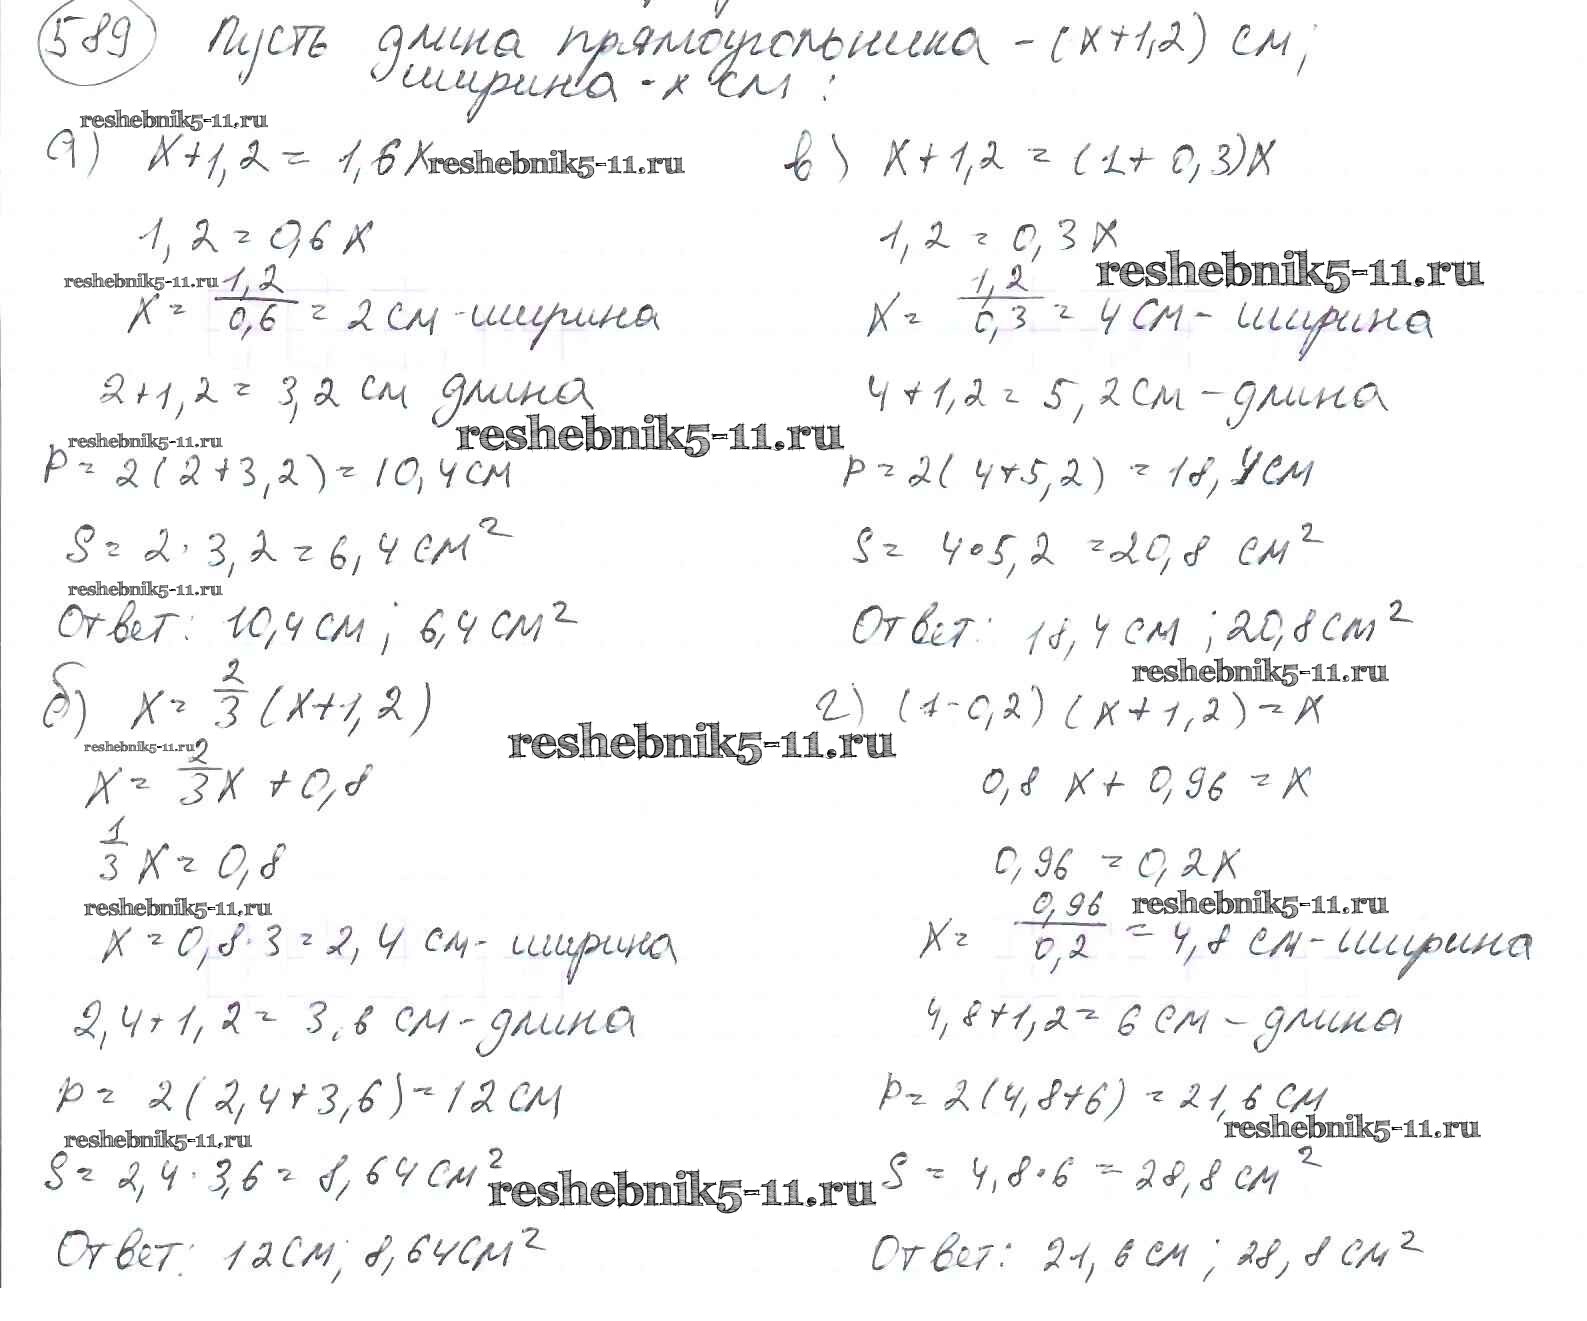 589 Пусть длина прямоугольника - (x+1,2) см;
ширина - x см:
reshebnik5-11.ru
а) x+1,2 = 1,6x
reshebnik5-11.ru
1,2 = 0,6x
reshebnik5-11.ru
x = 1,2/0,6 = 2 см - ширина
2+1,2 = 3,2 см длина
reshebnik5-11.ru
reshebnik5-11.ru
P = 2(2+3,2) = 10,4 см
S = 2·3,2 = 6,4 см²
reshebnik5-11.ru
Ответ: 10,4 см; 6,4 см²
б) x = 2/3 (x+1,2)
reshebnik5-11.ru
reshebnik5-11.ru
x = 2/3 x + 0,8
1/3 x = 0,8
reshebnik5-11.ru
x = 0,8·3 = 2,4 см - ширина
2,4+1,2 = 3,6 см - длина
P = 2(2,4+3,6) = 12 см
reshebnik5-11.ru
S = 2,4·3,6 = 8,64 см²
reshebnik5-11.ru
Ответ: 12 см; 8,64 см²
в) x+1,2 = (1+0,3)x
1,2 = 0,3x
reshebnik5-11.ru
x = 1,2/0,3 = 4 см - ширина
4+1,2 = 5,2 см - длина
P = 2(4+5,2) = 18,4 см
S = 4·5,2 = 20,8 см²
Ответ: 18,4 см; 20,8 см²
reshebnik5-11.ru
г) (1-0,2)(x+1,2) = x
0,8x + 0,96 = x
0,96 = 0,2x
reshebnik5-11.ru
x = 0,96/0,2 = 4,8 см - ширина
4,8+1,2 = 6 см - длина
P = 2(4,8+6) = 21,6 см
reshebnik5-11.ru
S = 4,8·6 = 28,8 см²
Ответ: 21,6 см; 28,8 см²